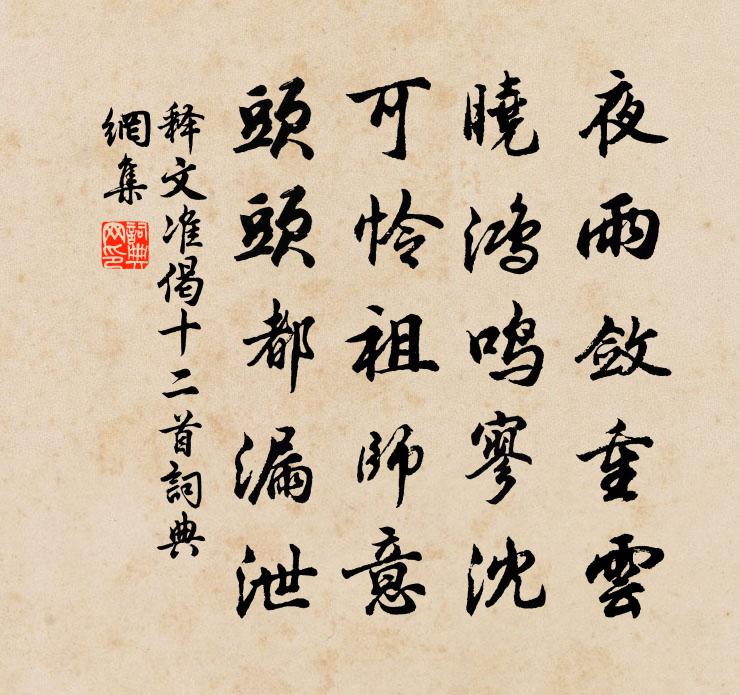 夜雨斂重雲
曉鴻鳴寥沈
可怜祖師意
頭頭都漏泄
释文准偈十二首詞典
網集
詞典网印